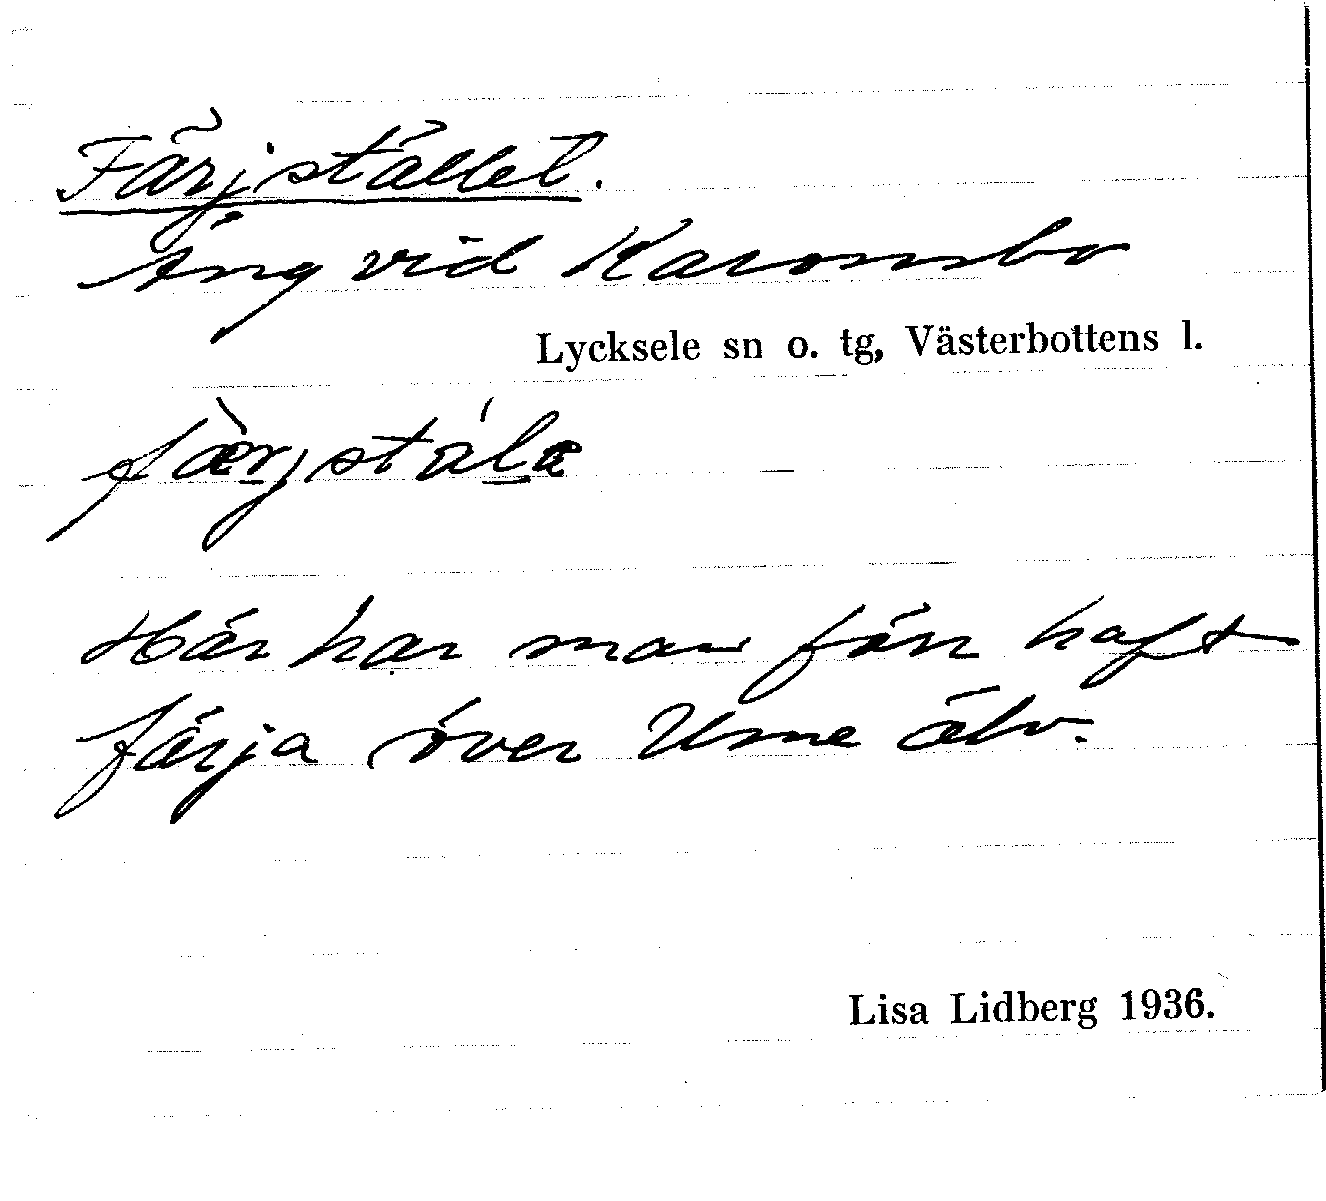 Färjstället.
Äng vid Karonsbo
Lycksele sn o. tg, Västerbottens l.
fæ̀rjstálæ
Här har man förr haft
färja över Ume älv.
Lisa Lidberg 1936.